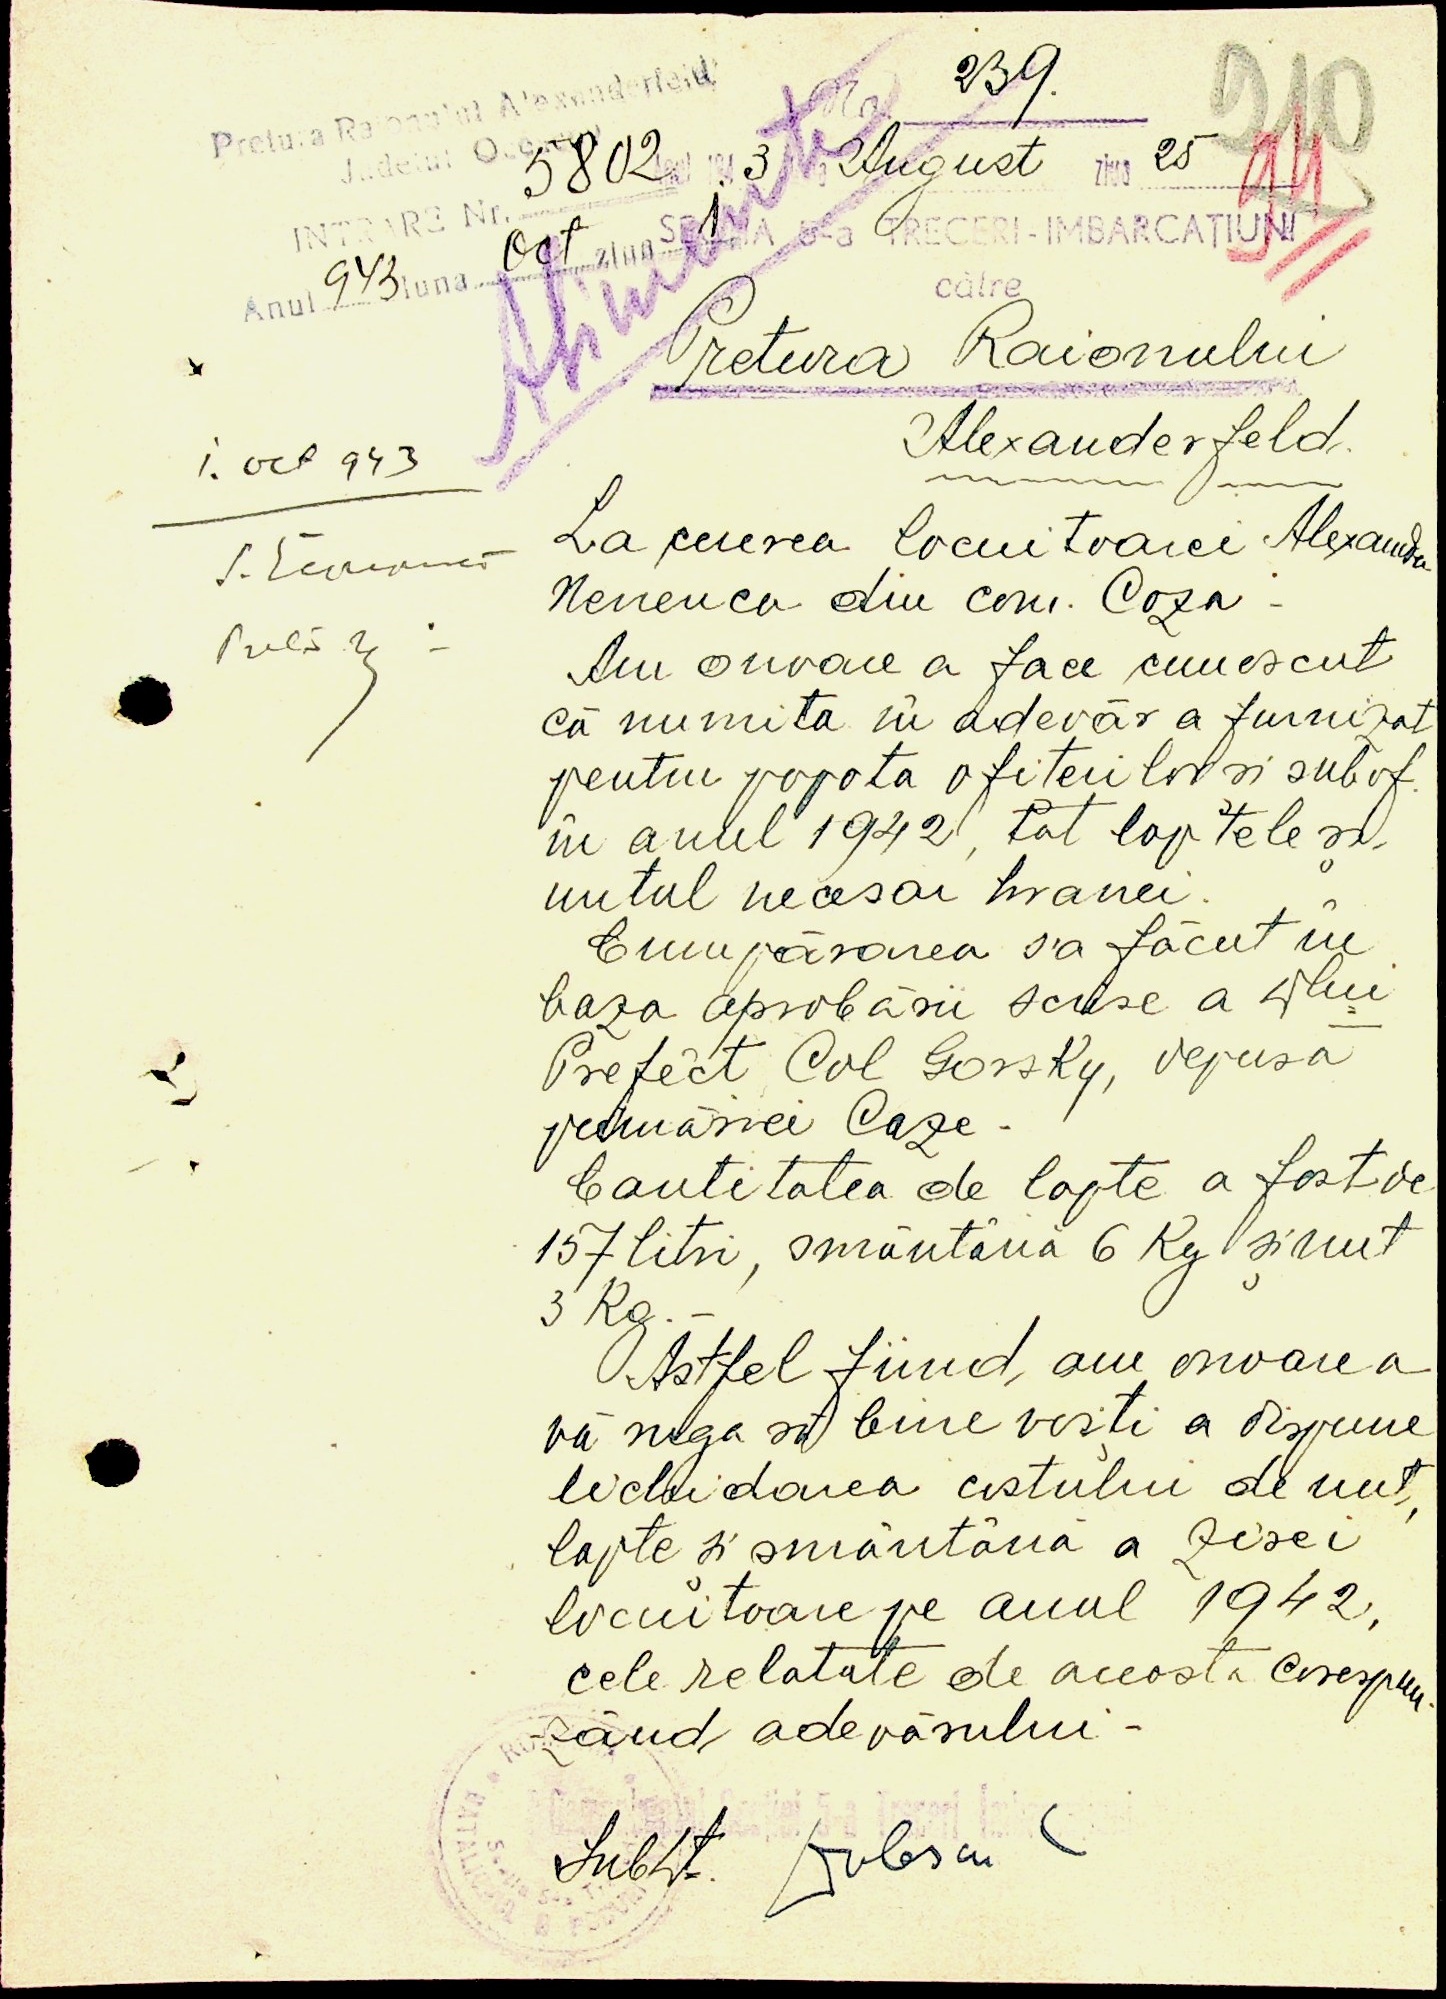 Pretura Raionului Alexanderfeld
Judetul
INTRARE Nr. 5802
Anul 943 luna Oct ziua 1
No. 239.
194 3 August ziua 25
210
94
SECTIA 5-a TRECERI-IMBARCAȚIUNI
către
Alimente
Pretura Raionului
Alexanderfeld.
1. oct 943
La cererea locuitoarei Alexandra
din com. Coza -
Am onoare a face cunoscut
că numita în adevăr a furnizat
pentru popota ofiterilor si subof.
în anul 1942, tot laptele și
untul necesar hranei.
Cumpărarea s'a făcut în
baza aprobării scrise a Dlui
Prefect Col Gorsky, depusă
primăriei Coze -
Cantitatea de lapte a fost de
157 litri, smântână 6 Kg și unt
3 Kg. -
Astfel fiind, am onoarea
vă ruga să bine voiți a dispune
lichidarea costului de unt,
lapte și smântână a zisei
locuitoare pe anul 1942,
cele relatate de aceasta corespun-
zând adevărului -
Secției 5-a Treceri
Sublt.